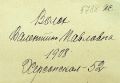 5788 ЛЕ
Вылок
Валентина Павловна
1908.
Херсонская - 52